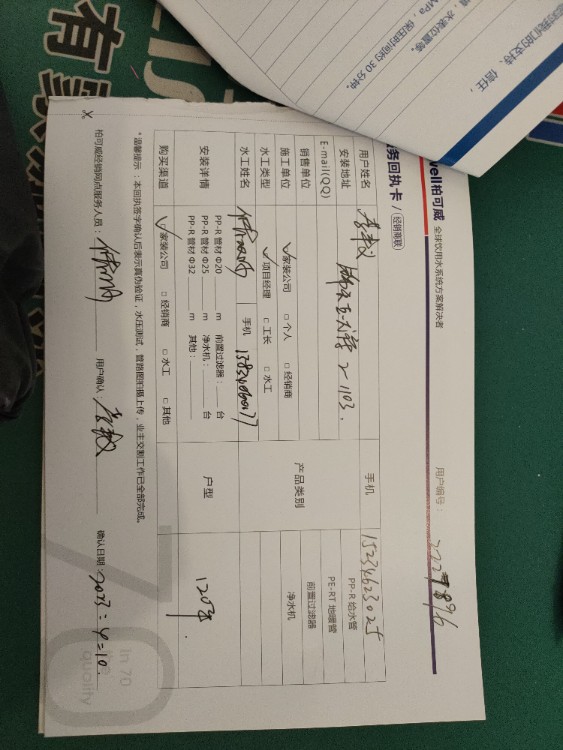 的支持、信任,
,水表位置等。
MPa,保压时间约30分钟。
有家
well柏可威 全球饮用水系统方案解决者
务回执卡/经销商联
用户编号:
用户姓名
手机 15234623025
安装地址 2-1103.
E-mail(QQ)
产品类别
PP-R 给水管
PE-RT 地暖管
前置过滤器
净水机
销售单位
施工单位 ✓家装公司 □ 个人 □ 经销商
水工类型 ✓项目经理 □ 工长 □ 水工
水工姓名 手机 13834060177
安装详情
PP-R 管材 Φ20 m 前置过滤器: 台
PP-R 管材 Φ25 m 净水机: 台
PP-R 管材 Φ32 m 其他:
户型 120
购买渠道 ✓家装公司 □ 经销商 □ 水工 □ 其他
*温馨提示:本回执签字确认后表示真伪验证,水压测试,管路图拍摄上传,业主交割工作已全部完成。
柏可威经销网点服务人员: 用户确认: 确认日期: 2023-4-10.
In 70
quality